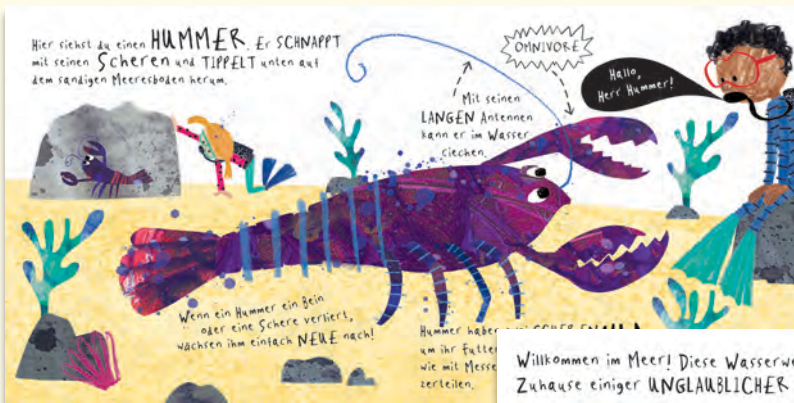 Hier siehst du einen HUMMER. Er SCHNAPPT
mit seinen Scheren und TIPPELT unten auf
dem sandigen Meeresboden herum.
OMNIVORE
Hallo,
Herr Hummer!
Mit seinen
LANGEN Antennen
kann er im Wasser
riechen.
Wenn ein Hummer ein Bein
oder eine Schere verliert,
wachsen ihm einfach NEUE nach!
Hummer haben
um ihr Futter
wie mit Messe
zerteilen.
Willkommen im Meer! Diese Wasserwe
Zuhause einiger UNGLAUBLICHER